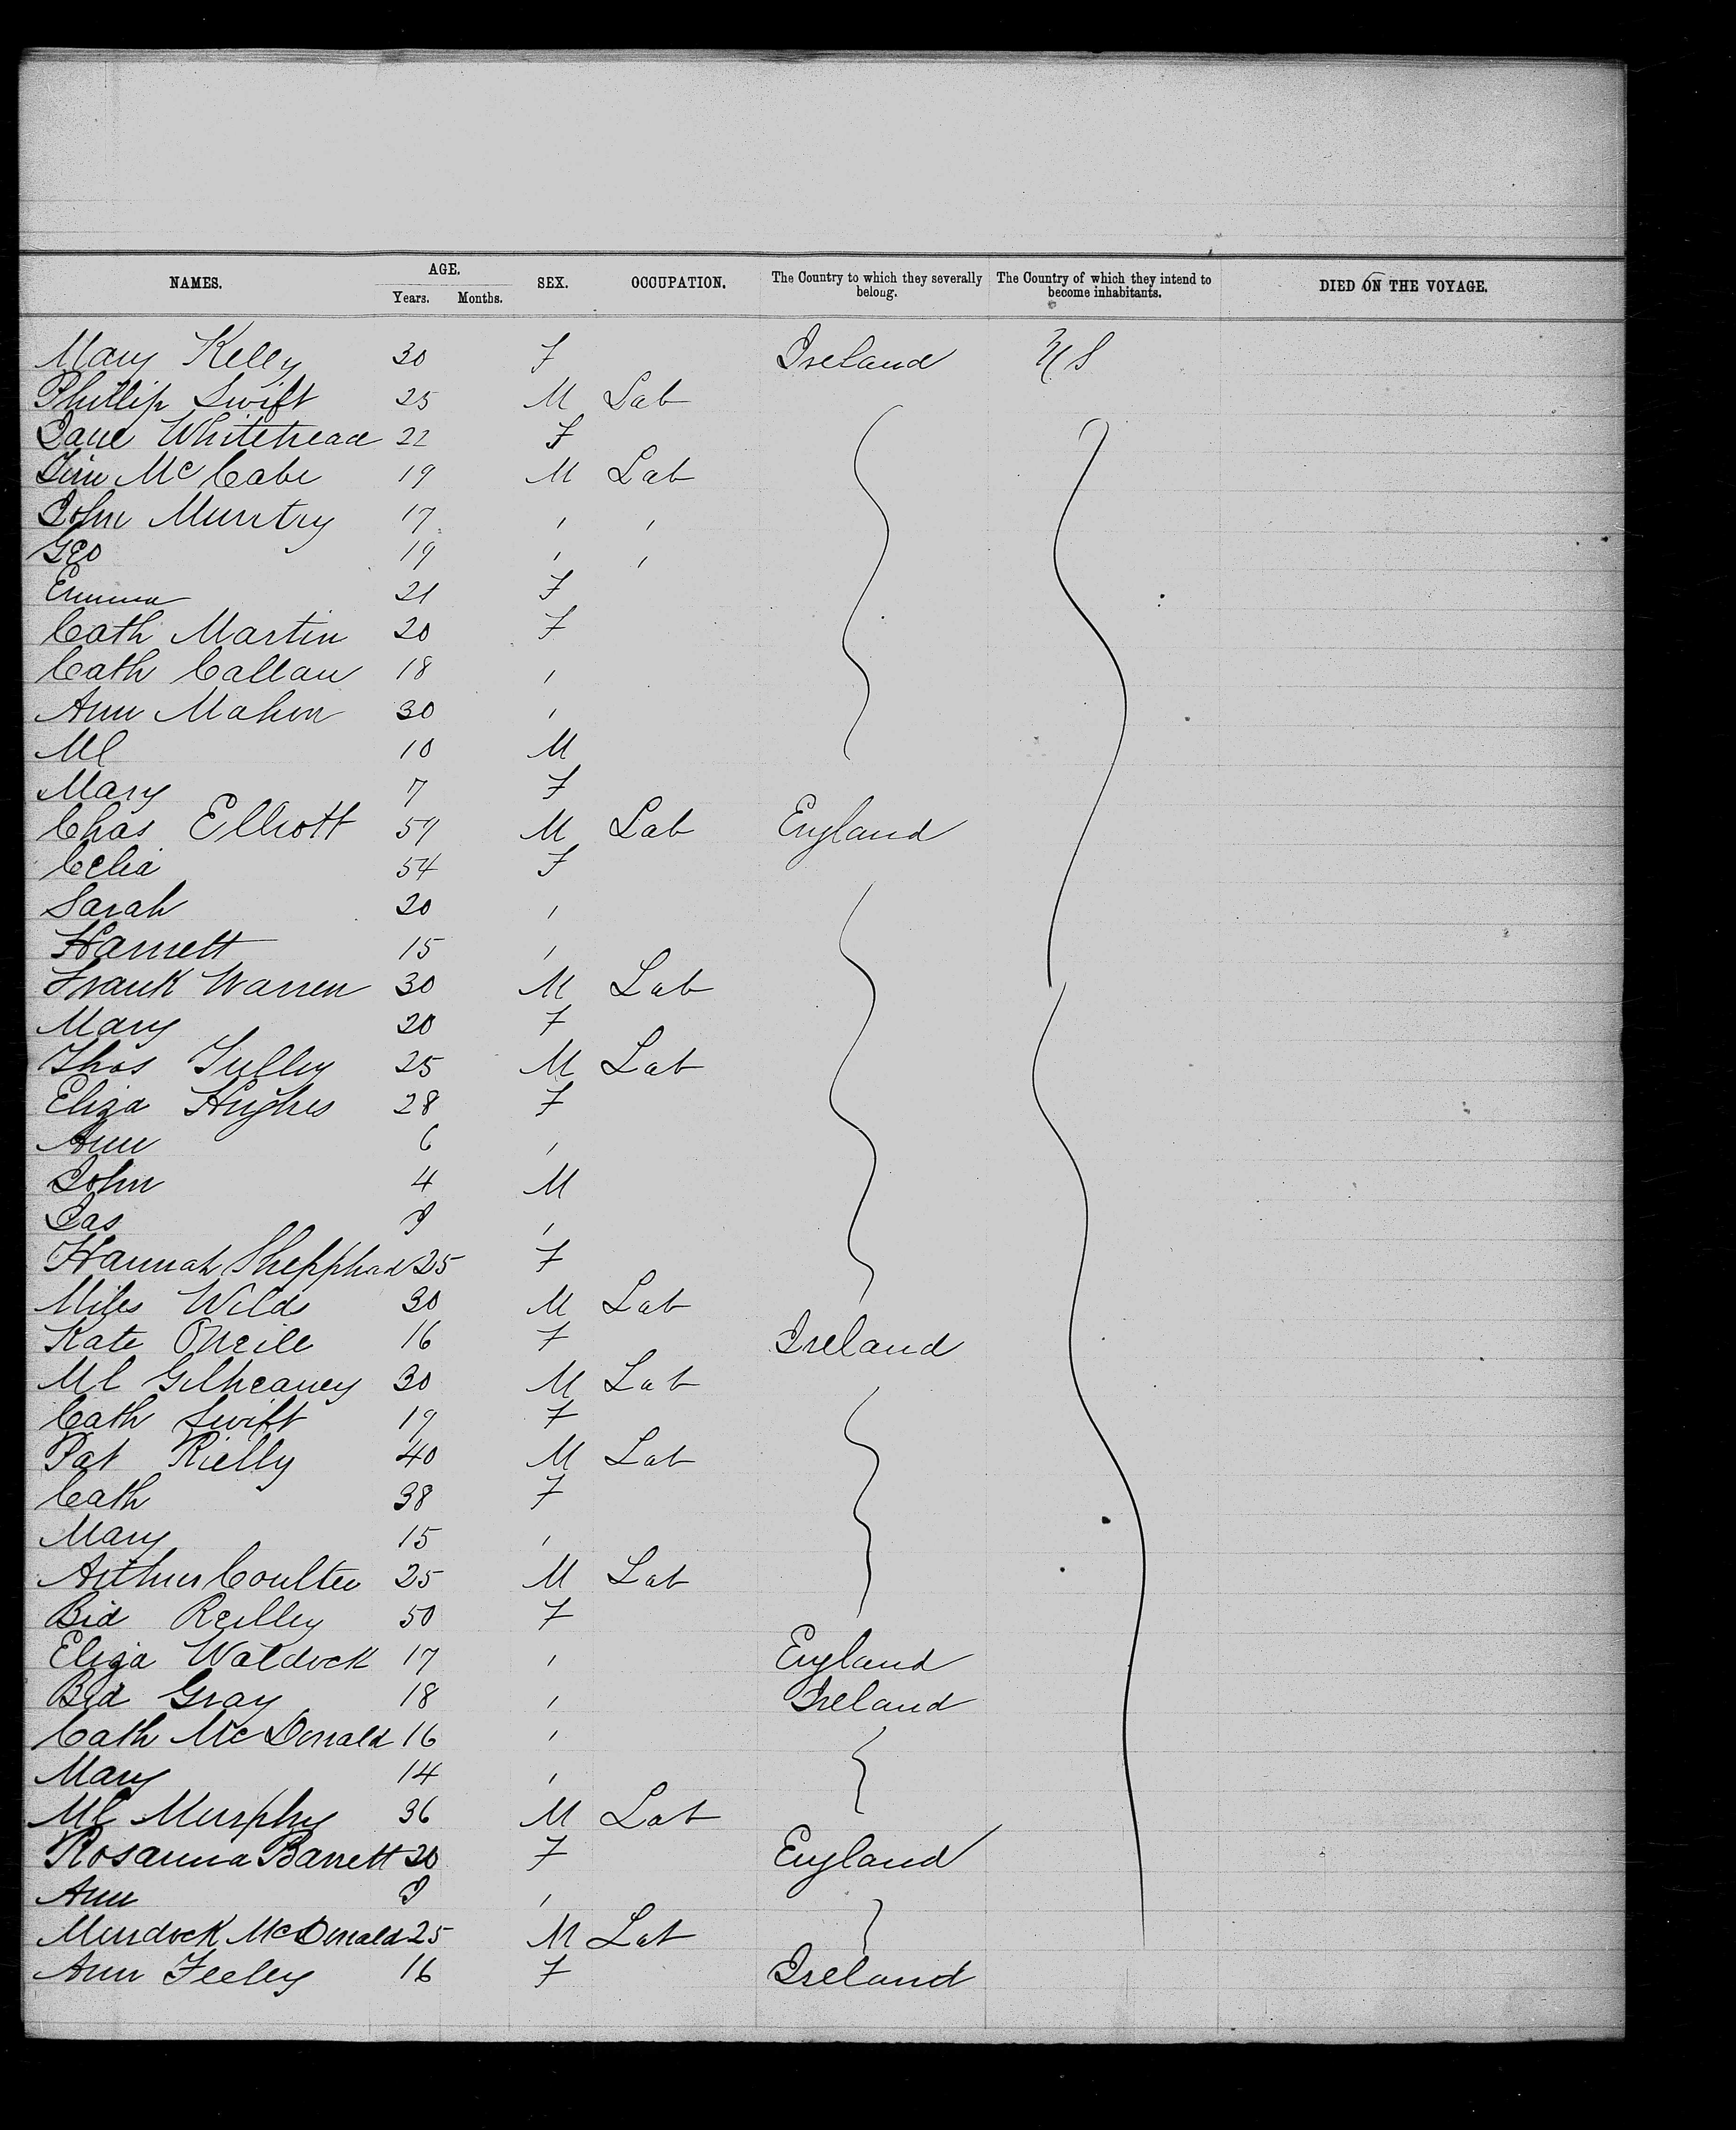 NAMES. AGE. SEX. OCCUPATION. The Country to which they severally belong. The Country of which they intend to become inhabitants. DIED ON THE VOYAGE.
Years. Months.
Mary Kelly 30 F Ireland U S
Phillip Swift 25 M Lab
Jane Whitehead 22 F
Jim McCabe 19 M Lab
John Murrtry 17 " "
Geo 19 " "
Emma 21 F
Cath Martin 20 F
Cath Callan 18 "
Ann Mahon 30 "
Ml 10 M
Mary 7 F
Chas Elliott 59 M Lab England
Celia 54 F
Sarah 20 "
Harriett 15 "
Frank Warren 30 M Lab
Mary 20 F
Thos Tulley 25 M Lab
Eliza Hughes 28 F
Ann 6 "
John 4 M
Jas 9 "
Hannah Shepphad 25 F
Miles Wilds 30 M Lab
Kate ONeile 16 F Ireland
Ml Gilheaney 30 M Lab
Cath Swift 19 F
Pat Rielly 40 M Lab
Cath 38 F
Mary 15 "
Arthur Coulter 25 M Lab
Bid Reilley 50 F
Eliza Waldock 17 " England
Bid Gray 18 " Ireland
Cath McDonald 16 "
Mary 14 "
Ml Murphy 36 M Lab
Rosanna Barrett 20 F England
Ann 9 "
Murdock McDonald 25 M Lab
Ann Feeley 16 F Ireland